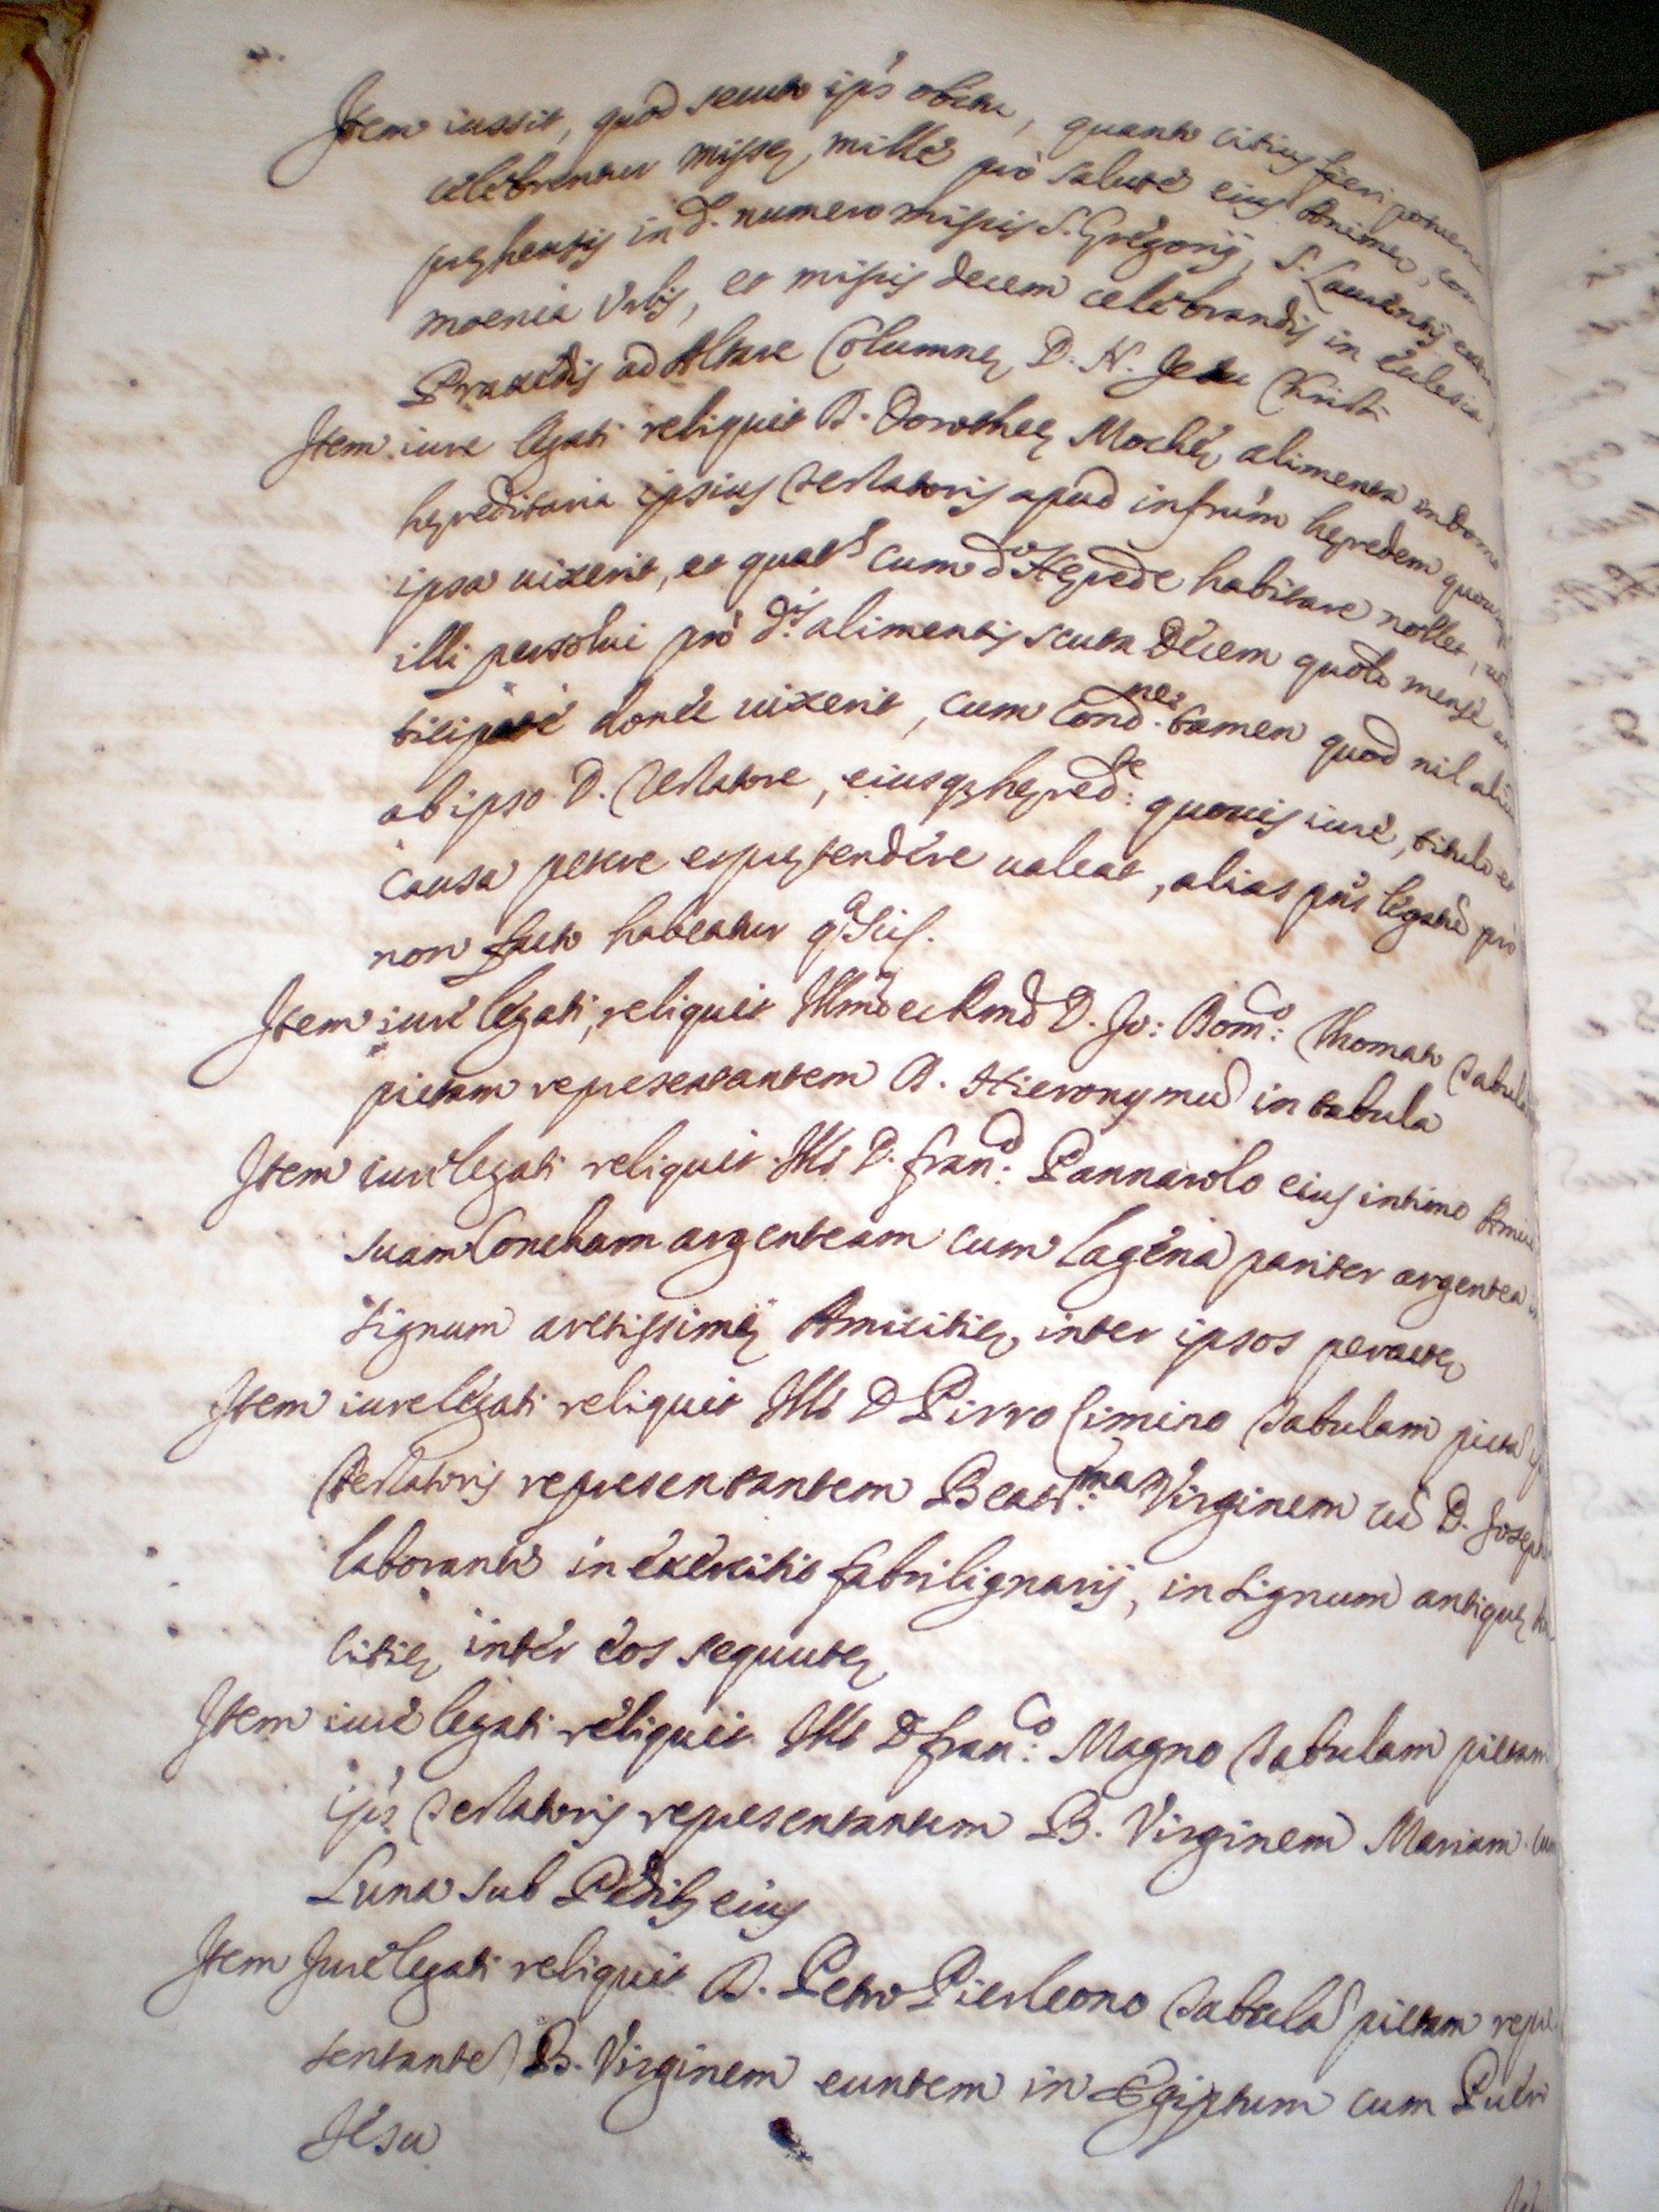 Item iussit, quod secuto ip's obitu, quanto citius fieri poterit
celebrentur missę mille pro salute eius Animę, com
pręhensis in d. numero missis S. Gregorij, S. Laurentij extra
moenia Urbis, et missis decem celebrandis in Ecclesia S.
Praxedis ad Altare Columnę D. N. Jesu Christi
Item iure legati reliquit D. Dorotheę Mochę alimenta in domo
hęreditaria ipsius Testatoris apud infrūm hęredem quousq
ipsa uixerit, et quats cum do Hęrede habitare nollet,
illi persolui pro dis alimentis scuta Decem quolt mense an
ticipate donec uixerit, cum Condne tamen quod nil aliud
ab ipso D. Testatore, eiusq hęrede: quouis iure, titulo et
causa petere et pretendere ualeat, alias pns legatū pro
non facto habeatur qa sic.
Item iure legati reliquit Illmo et Rmo D. Jo: Domco: Thomato Tabula
pictam representantem D. Hieronymū in tabula
Item iure legati reliquit Illi D. Franco: Pannarolo eius intimo Amico
suam Concham argenteam cum Lagena pariter argentea in
signum arctissimę Amicitię inter ipsos peractę
Item iure legati reliquit Illi D Pirro Cimino Tabulam pictā ip
Testatoris representantem Beatmam: Virginem cū D. Joseph
laborante in exercitio fabrilignarij, in signum antiquę Ami
citię inter eos sequutę
Item iure legati reliquit Illi D Franco: Magno Tabulam pictam
ip's Testatoris representantem B. Virginem Mariam cum
Luna sub Pedib eius
Item Jure legati reliquit D. Petro Pierleono Tabulā pictam repre
sentante B. Virginem euntem in Egiptum cum Puero
Jesu